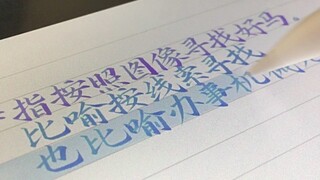 指按照图像寻找好马。
比喻按线索寻找
也比喻办事机